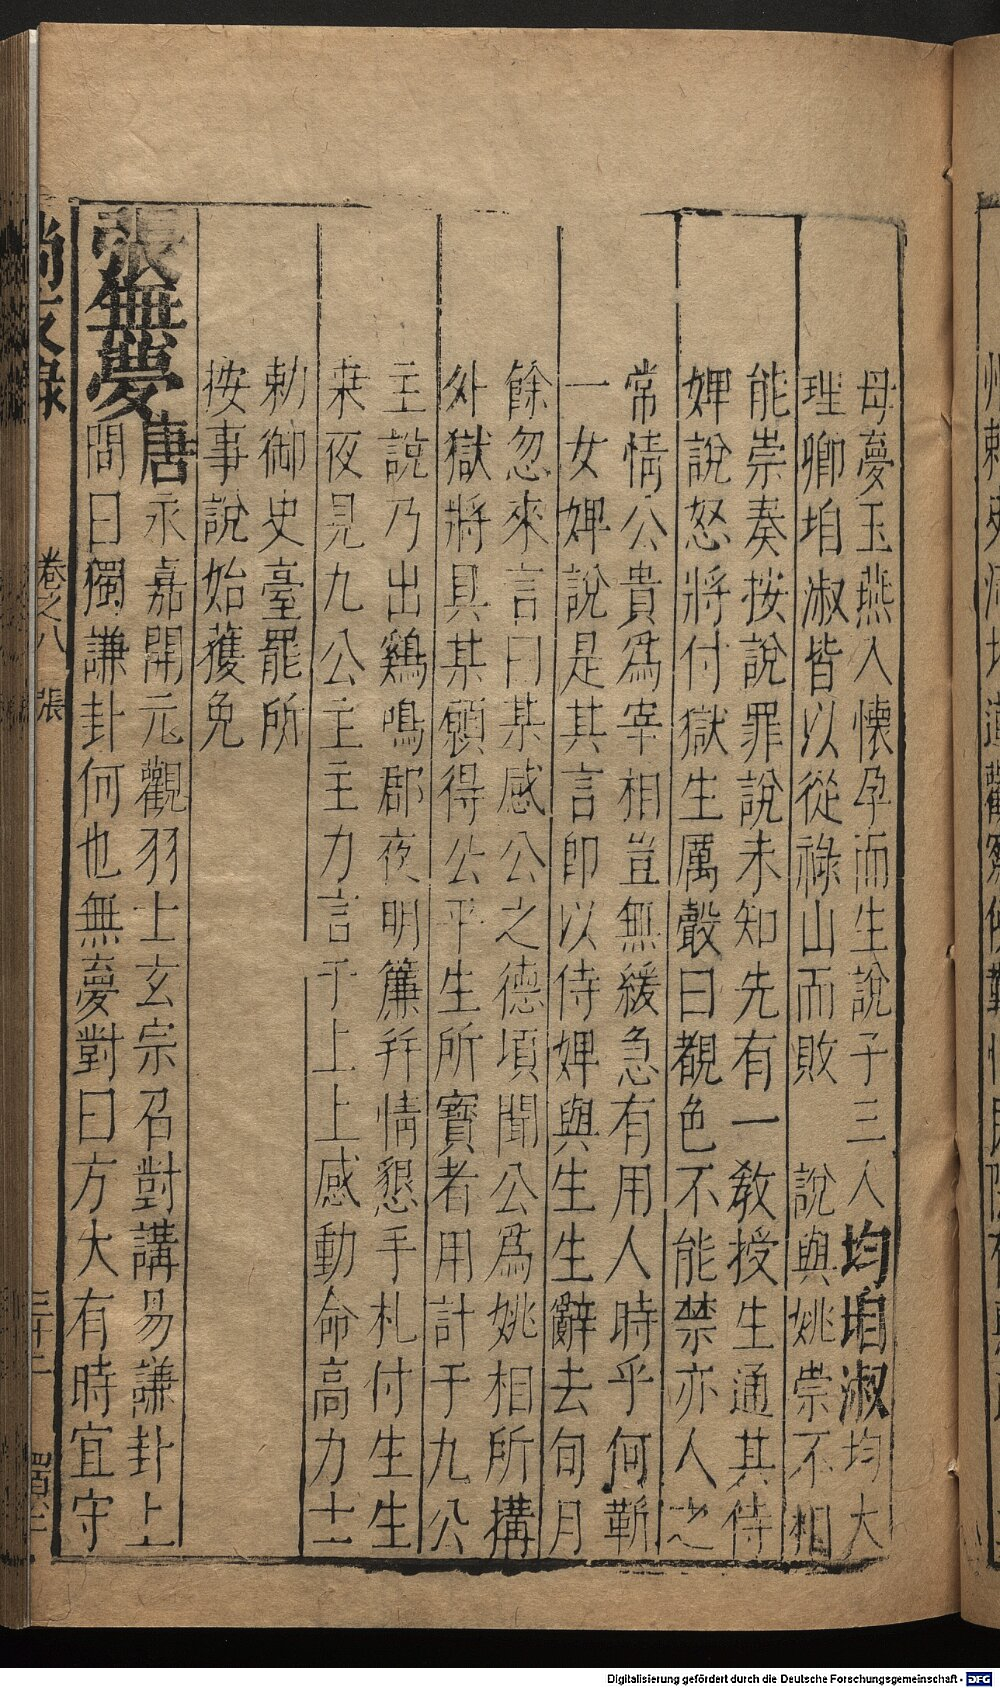 母夢玉燕入懷孕而生說子三人均垍淑均大
理卿垍淑皆以從祿山而敗　說與姚崇不相
能崇奏按說罪說未知先有一教授生通其侍
婢說怒將付獄生厲聲曰覩色不能禁亦人之
常情公貴爲宰相豈無緩急有用人時乎何靳
一女婢說是其言即以侍婢與生生辭去旬月
餘忽來言曰某感公之德頃聞公爲姚相所搆
外獄將具某願得公平生所寶者用計于九公
主說乃出鷄鳴郡夜明簾并情懇手札付生生
桒夜見九公主主力言于上上感動命高力士
勅御史臺罷所
按事說始獲免
張無夢唐永嘉開元觀羽士玄宗召對講易謙卦上
問曰獨謙卦何也無夢對曰方大有時宜守
尚友錄　卷之八　張　三十二
Digitalisierung gefördert durch die Deutsche Forschungsgemeinschaft - DFG